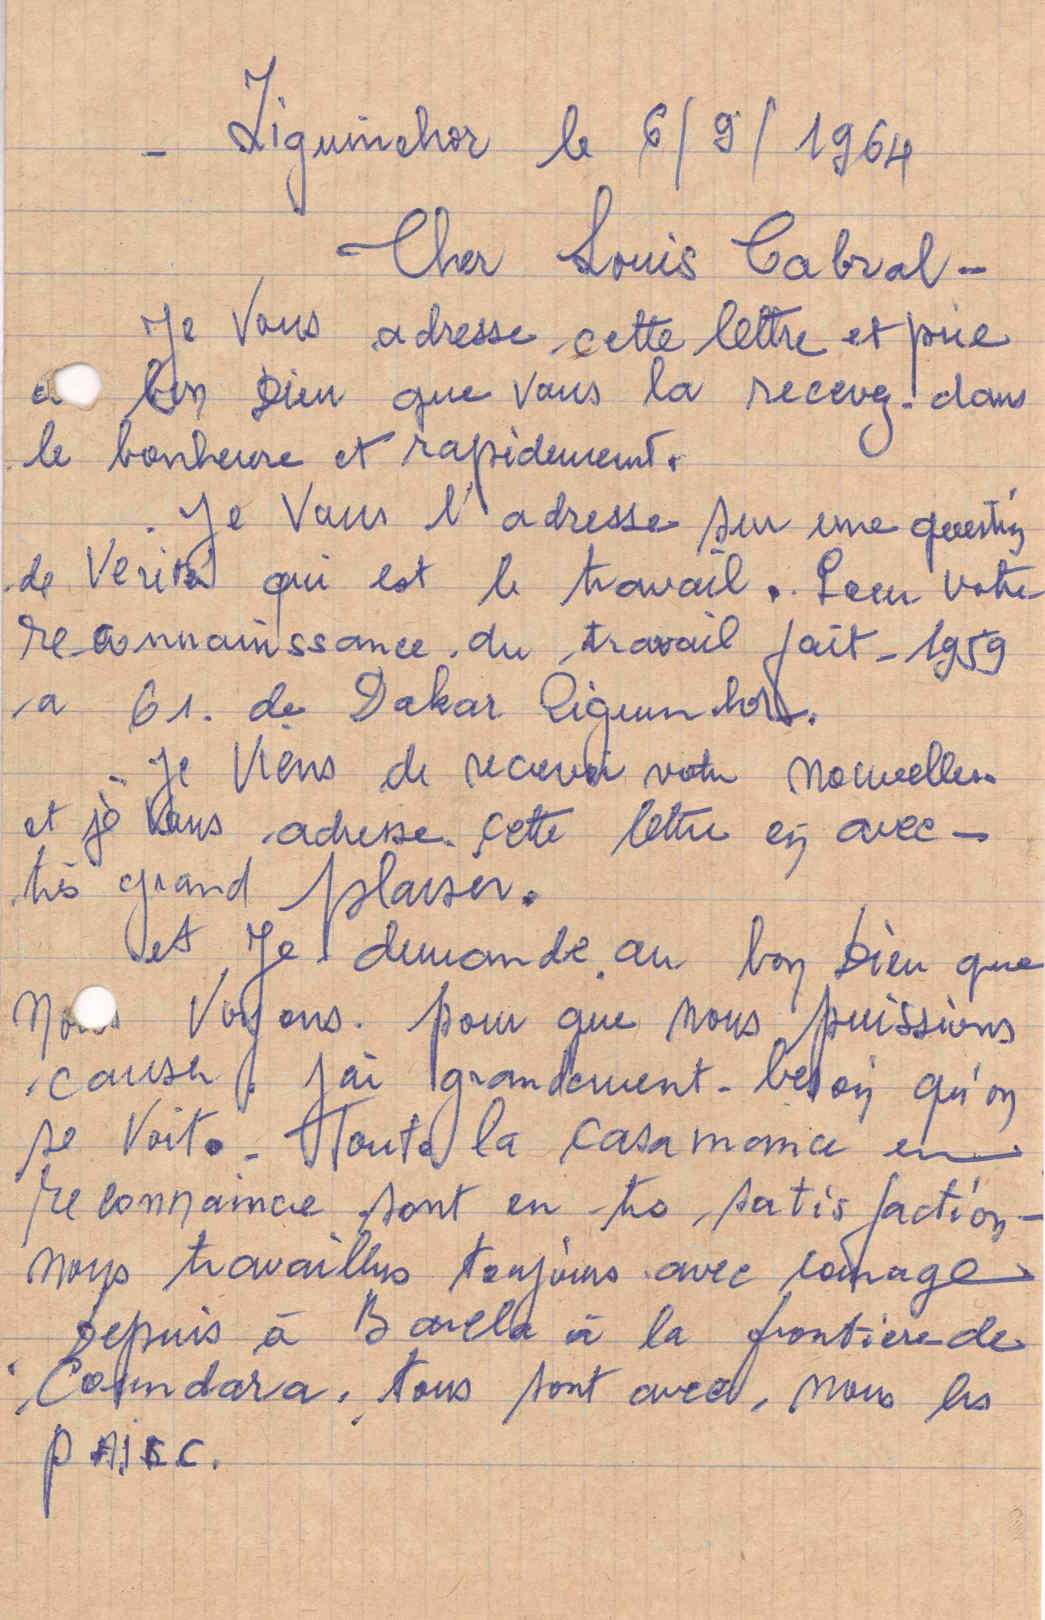 - Ziguinchor le 6/9/1964
Cher Louis Cabral -
Je Vous adresse cette lettre et prie
bon Dieu que vous la recevez dans
le bonheure et rapidement.
Je Vous l'adresse sur une question
de Verité qui est le travail. Pour votre
reconnainssance du travail fait - 1959
a 61. de Dakar Ziguinchor.
Je Viens de recevoir votre nouvelles
et je vous adresse cette lettre en avec -
très grand plaiser.
et Je demande au bon Dieu que
Nous Voyons. pour que nous puissions
causer. J'ai grandement besoin qu'on
se Voit. - Toute la casamance en
reconnaince sont en très satisfaction -
nous travaillus toujours avec courage
Depuis à Barela à la frontière de
Coundara, tous sont avec, nous les
PAIGC.